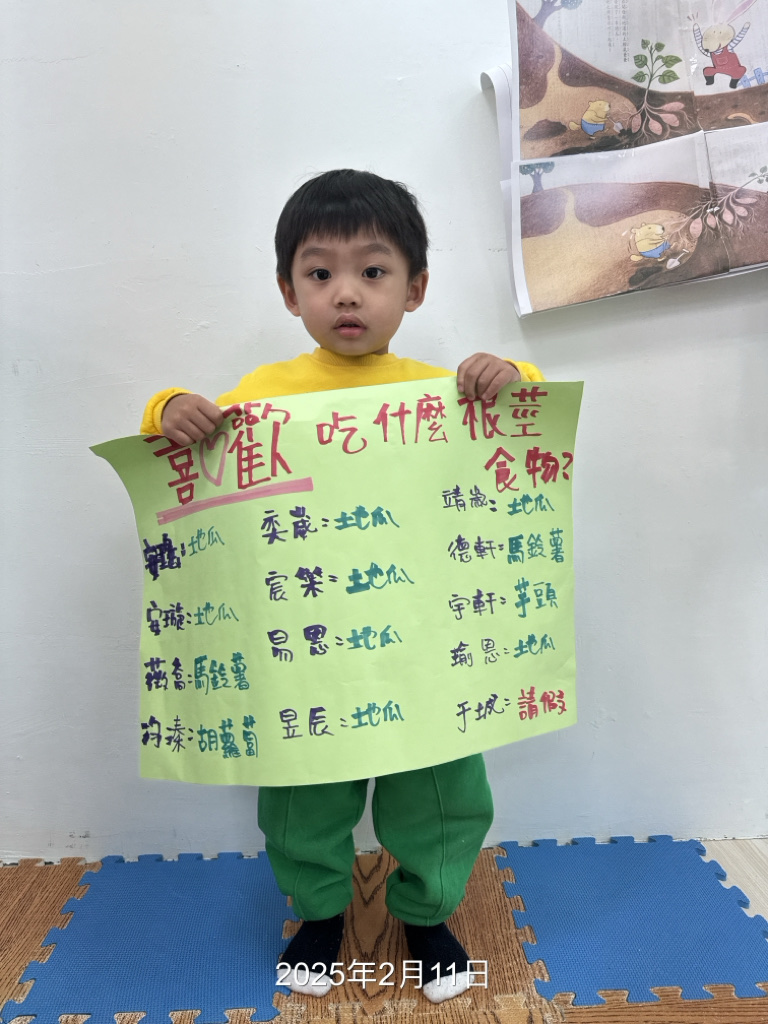 喜歡吃什麼根莖
食物?
地瓜
安璇:地瓜
馬鈴薯
胡蘿蔔
奕葳:地瓜
宸榮:地瓜
易恩:地瓜
昱辰:地瓜
靖嵗:地瓜
德軒:馬鈴薯
宇軒:芋頭
瑜恩:地瓜
請假
2025年2月11日